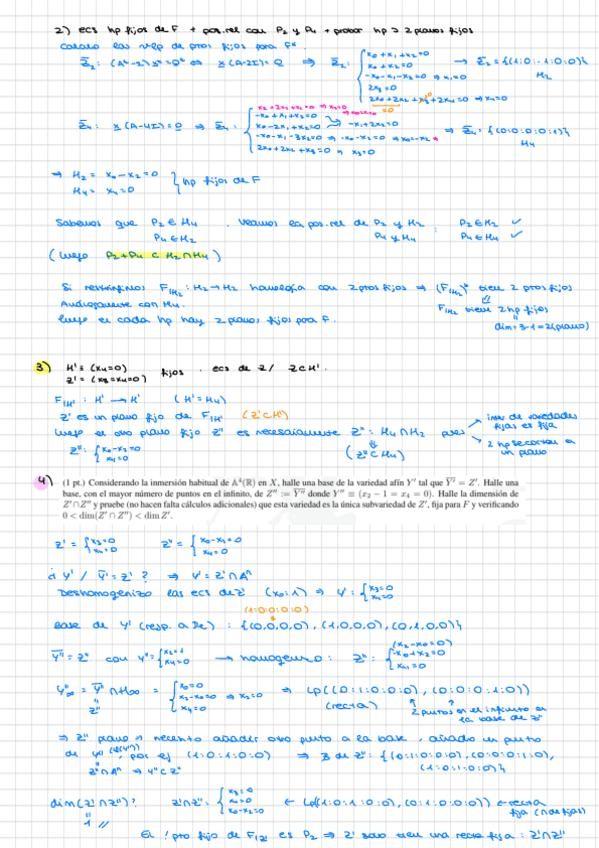 2) ecs hp fijos de F + pos.rel con P₂ y P₄ + probar hp ⊃ 2 planos fijos
Calculo las vlp de ptos fijos para F*.
x₀+x₁+x₂=0
x₀+x₂=0
-x₀-x₁-x₂=0 ⇒ x₁=0
2x₃=0
2x₀+2x₂+x₃+2x₄=0 ⇒ x₄=0
H₂
-x₀+x₁+x₂=0
x₀-2x₁+x₂=0
-x₀-x₁-3x₂=0 ⇒ -x₀-x₂=0
2x₀+2x₂+x₃=0 ⇒ x₃=0
H₄
⇒ H₂ ≡ x₀-x₂=0
H₄ ≡ x₄=0 } hp fijos de F
Sabemos que P₂ ∈ H₄ . Veamos la pos.rel de P₂ y H₂ : P₂ ∈ H₂ ✓
P₄ ∈ H₂ P₄ y H₄ P₄ ∈ H₄ ✓
(luego P₂+P₄ ⊂ H₂∩H₄)
Si restringimos F|H₂ : H₂→H₂ homología con 2 ptos fijos ⇒ (F|H₂)* tiene 2 ptos fijos
Análogamente con H₄. F|H₂ tiene 2 hp fijos
luego en cada hp hay 2 planos fijos para F. dim=3-1=2 (plano)
3) H' ≡ (x₄=0)
Z' ≡ (x₃=x₄=0) fijos . ecs de Z / Z⊂H'.
F|H' : H' → H' (H'=H₄)
Z' es un plano fijo de F|H' (Z'⊂H')
luego el otro plano fijo Z'' es necesariamente Z'' : H₄∩H₂ pues
inter de variedades fijas es fija
2 hp se cortan en un plano
Z'' : { x₀-x₂=0
x₄=0 (Z''⊂H₄)
4) (1 pt.) Considerando la inmersión habitual de 𝔸⁴(ℝ) en X, halle una base de la variedad afín Y' tal que Y̅' = Z'. Halle una
base, con el mayor número de puntos en el infinito, de Z'' := Y̅'' donde Y'' ≡ (x₂ − 1 = x₄ = 0). Halle la dimensión de
Z'∩Z'' y pruebe (no hacen falta cálculos adicionales) que esta variedad es la única subvariedad de Z', fija para F y verificando
0 < dim(Z' ∩ Z'') < dim Z'.
Z' ≡ { x₃=0
x₄=0
Z'' ≡ { x₀-x₂=0
x₄=0
¿ Y' / Y̅'=Z' ? ⇒ Y'=Z'∩𝔸ⁿ
Deshomogenizo las ecs de Z' (x₀=1) ⇒ Y' : { x₃=0
x₄=0
(1:0:0:0:0)
Base de Y' : {(0,0,0,0), (1,0,0,0), (0,1,0,0)}
(x₂-x₀=0)
Y̅''=Z'' con Y''≡{ x₂=1
x₄=0 → homogenizo : Z'' : { -x₀+x₂=0
x₄=0
x₀=0
x₂-x₀=0 ⇒ x₂=0
x₄=0 ⇒ Lp((0:1:0:0:0), (0:0:0:1:0))
(recta) 2 puntos en el infinito en la base de Z''
⇒ Z'' plano ⇒ necesito añadir otro punto a la base, añado un punto
de Y'', por ej (1:0:1:0:0) ⇒ B de Z'' : {(0:1:0:0:0), (0:0:0:1:0),
Z''∩𝔸ⁿ ⇒ Y''⊂Z'' (1:0:1:0:0)}
dim(Z'∩Z'')? Z'∩Z'' : { x₃=0
x₄=0
x₀-x₂=0 ← Lp((1:0:1:0:0), (0:1:0:0:0)) ← recta
1 //
El ! pto fijo de F|Z' es P₂ ⇒ Z' solo tiene una recta fija : Z'∩Z''